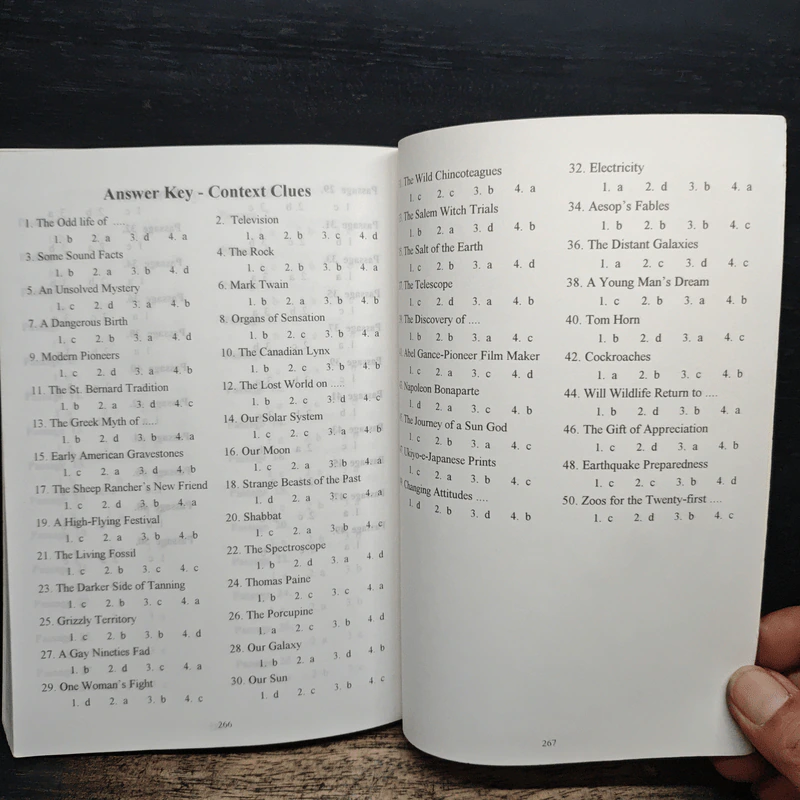 Answer Key - Context Clues
1. The Odd life of ....
1. b 2. a 3. d 4. a
3. Some Sound Facts
1. b 2. a 3. b 4. d
5. An Unsolved Mystery
1. c 2. d 3. a 4. b
7. A Dangerous Birth
1. c 2. b 3. a 4. d
9. Modern Pioneers
1. c 2. d 3. a 4. b
11. The St. Bernard Tradition
1. b 2. a 3. d 4. c
13. The Greek Myth of .....
1. b 2. d 3. b 4. a
15. Early American Gravestones
1. c 2. a 3. d 4. b
17. The Sheep Rancher's New Friend
1. c 2. d 3. b 4. a
19. A High-Flying Festival
1. c 2. a 3. b 4. b
21. The Living Fossil
1. c 2. b 3. d 4. c
23. The Darker Side of Tanning
1. c 2. b 3. c 4. a
25. Grizzly Territory
1. c 2. b 3. b 4. d
27. A Gay Nineties Fad
1. b 2. d 3. c 4. a
29. One Woman's Fight
1. d 2. a 3. b 4. c
2. Television
1. a 2. b 3. c 4. d
4. The Rock
1. c 2. b 3. b 4. a
6. Mark Twain
1. b 2. a 3. b 4. b
8. Organs of Sensation
1. b 2. c 3. b 4. a
10. The Canadian Lynx
1. b 2. c 3. b 4. b
12. The Lost World on .....
1. b 2. c 3. d 4. c
14. Our Solar System
1. c 2. c 3. a 4. b
16. Our Moon
1. c 2. a 3. b 4. a
18. Strange Beasts of the Past
1. d 2. a 3. c 4. a
20. Shabbat
1. c 2. a 3. b 4. c
22. The Spectroscope
1. b 2. d 3. a 4. d
24. Thomas Paine
1. b 2. c 3. c 4. a
26. The Porcupine
1. a 2. c 3. b 4. d
28. Our Galaxy
1. b 2. a 3. d 4. b
30. Our Sun
1. d 2. c 3. b 4. c
266
The Wild Chincoteagues
1. c 2. c 3. b 4. a
The Salem Witch Trials
1. b 2. a 3. d 4. b
The Salt of the Earth
1. c 2. b 3. a 4. d
The Telescope
1. c 2. d 3. a 4. b
The Discovery of ....
1. b 2. b 3. a 4. c
Abel Gance-Pioneer Film Maker
1. c 2. a 3. c 4. d
Napoleon Bonaparte
1. d 2. a 3. c 4. b
The Journey of a Sun God
1. c 2. b 3. a 4. c
Ukiyo-e-Japanese Prints
1. b 2. a 3. b 4. c
Changing Attitudes ....
1. d 2. b 3. d 4. b
32. Electricity
1. a 2. d 3. b 4. a
34. Aesop's Fables
1. b 2. b 3. b 4. c
36. The Distant Galaxies
1. a 2. c 3. d 4. c
38. A Young Man's Dream
1. c 2. b 3. a 4. b
40. Tom Horn
1. b 2. d 3. a 4. c
42. Cockroaches
1. a 2. b 3. c 4. b
44. Will Wildlife Return to ....
1. b 2. d 3. b 4. a
46. The Gift of Appreciation
1. c 2. d 3. a 4. b
48. Earthquake Preparedness
1. c 2. c 3. b 4. d
50. Zoos for the Twenty-first ....
1. c 2. d 3. b 4. c
267